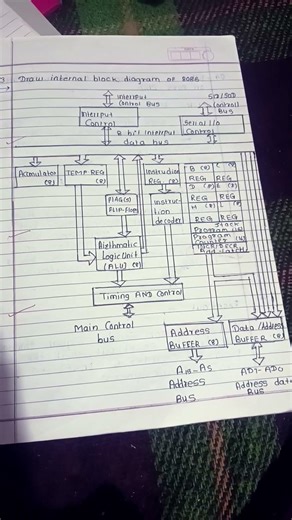 3. Draw internal block diagram of 8086
Interrput
control Bus
SID/SOD
control
Bus
Interrput
Control
Serial I/O
Control
8 bit Interrput
data bus
Accmulator
(8)
TEMP REG
(8)
Instruction
REG (8)
B (8) C (8)
REG REG
D (8) E (8)
REG REG
H (8) L (8)
REG REG
Stack
Program
Program
Counter
Add latch
FlAG(s)
FlIP-Flops
Instruc
tion
decoder
Arithmatic
Logic Unit
(ALU) (8)
Timing AND Control
Main Control
bus
Address
BUFFER (8)
Data /Address
BUFFER (8)
A15-A8
Address
Bus
AD7-AD0
Address data
Bus